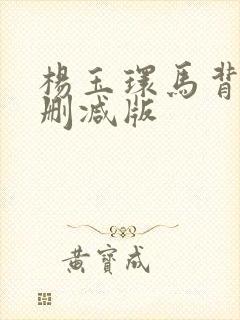 楊玉環馬背
刪减版
黃寶成